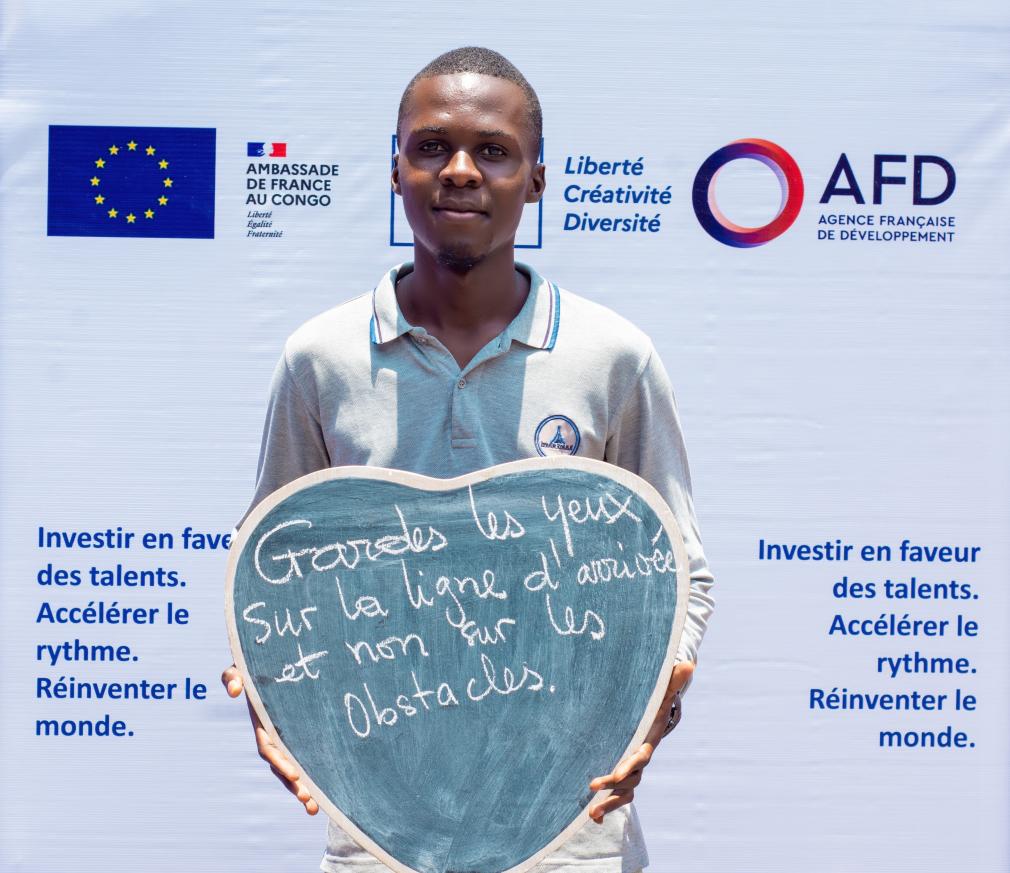 AMBASSADE
DE FRANCE
AU CONGO
Liberté
Égalité
Fraternité
Liberté
Créativité
Diversité
AFD
AGENCE FRANÇAISE
DE DÉVELOPPEMENT
Gardes les yeux
sur la ligne d'arrivée
et non sur les
Obstacles.
Investir en fave
des talents.
Accélérer le
rythme.
Réinventer le
monde.
Investir en faveur
des talents.
Accélérer le
rythme.
Réinventer le
monde.